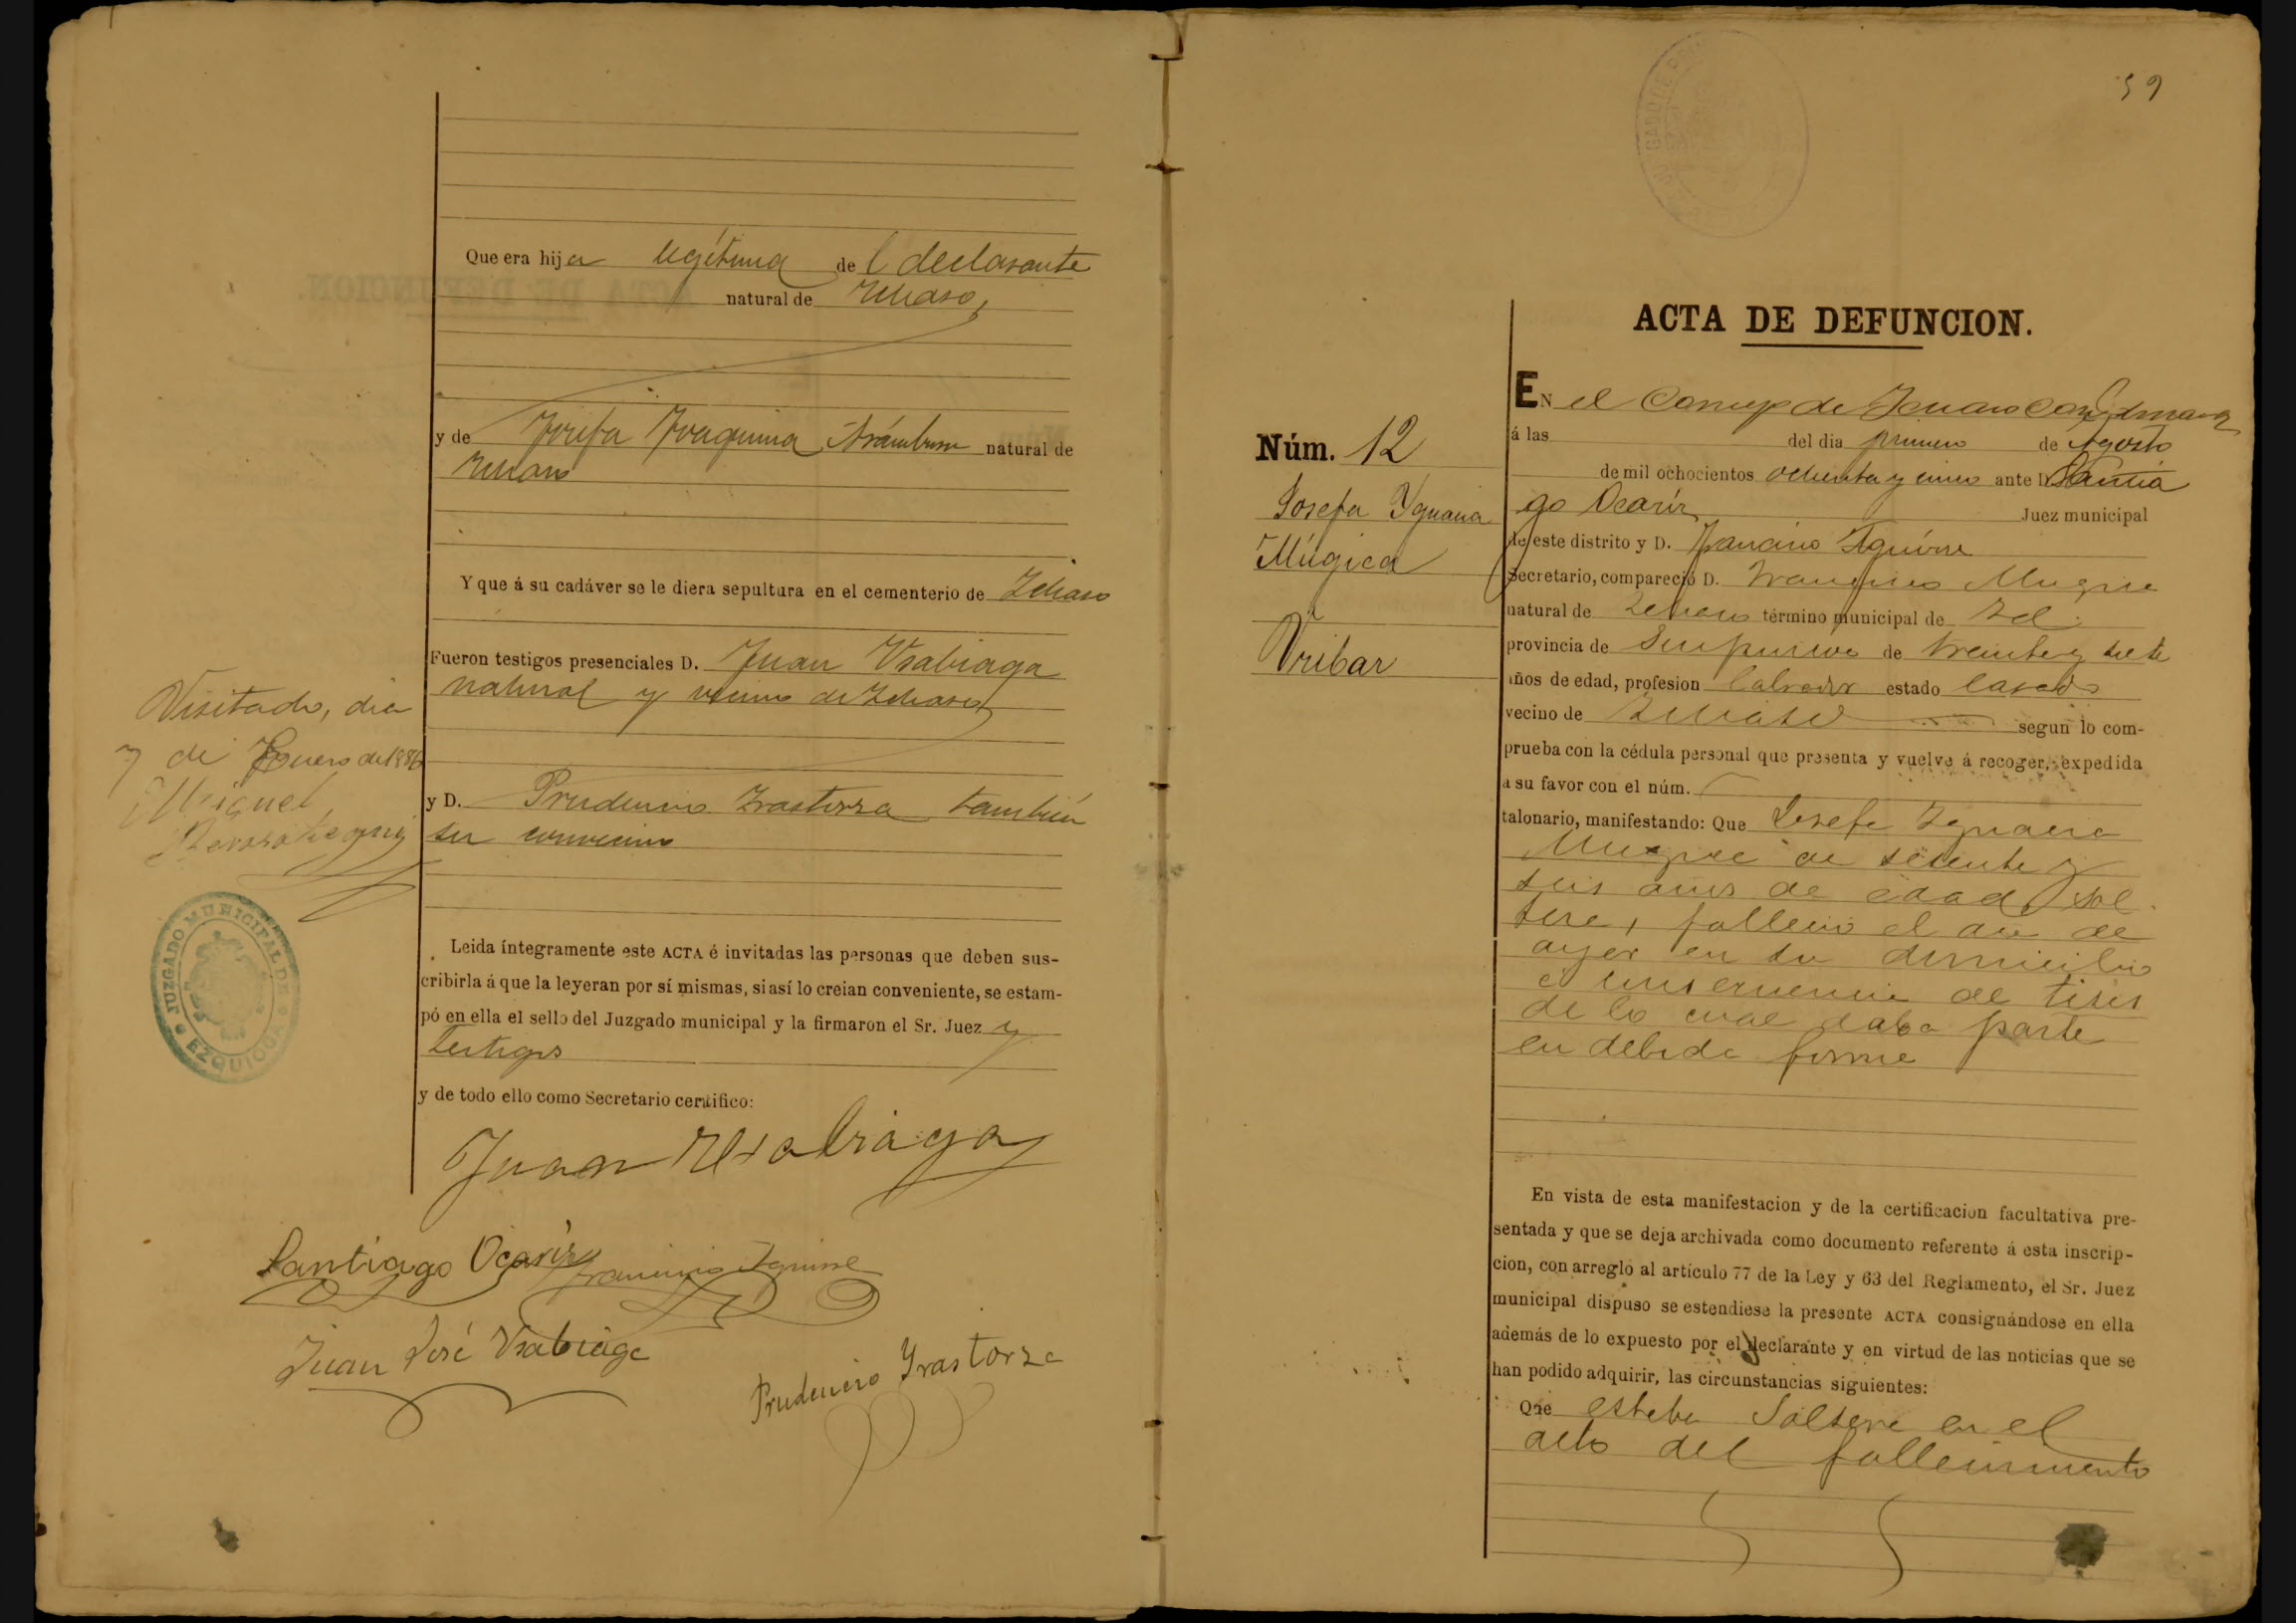 Que era hija legítima de l declarante
natural de Ichaso,
y de Josefa Joaquina Arámburu natural de
Ichaso
Y que á su cadáver se le diera sepultura en el cementerio de Ichaso
Fueron testigos presenciales D. Juan Usabiaga
natural y vecino de Ichaso
y D. Prudencio Irastorza tambien
su convecino
Visitado, dia
7 de Enero de 1886
Miguel
Leida íntegramente este ACTA é invitadas las personas que deben sus-
cribirla á que la leyeran por sí mismas, si así lo creian conveniente, se estam-
pó en ella el sello del Juzgado municipal y la firmaron el Sr. Juez y
testigos
JUZGADO MUNICIPAL DE
EZQUIOGA
y de todo ello como Secretario certifico:
Juan Usabiaga
Santiago Ocariz Francisco Aguirre
Juan José Usabiaga
Prudencio Yrastorza
59
ACTA DE DEFUNCION.
Núm. 12
Josefa Ygnacia
Múgica
Uribar
EN el Concejo de Ichaso
á las del dia primero de Agosto
de mil ochocientos ochenta y cinco ante D. Santia
go Ocariz Juez municipal
de este distrito y D. Francisco Aguirre
Secretario, compareció D. Francisco Mugica
natural de Ichaso término municipal de Id.
provincia de Guipuzcoa de treinta y siete
años de edad, profesion labrador estado casado
vecino de Ichaso segun lo com-
prueba con la cédula personal que presenta y vuelve á recoger, expedida
a su favor con el núm.
talonario, manifestando: Que Josefa Ignacia
Mugica de sesenta y
seis años de edad, sol
tera, fallecio el dia de
ayer en su domicilio
a consecuencia de tisis
de lo cual daba parte
en debida forma
En vista de esta manifestacion y de la certificacion facultativa pre-
sentada y que se deja archivada como documento referente á esta inscrip-
cion, con arreglo al artículo 77 de la Ley y 63 del Reglamento, el Sr. Juez
municipal dispuso se estendiese la presente ACTA consignándose en ella
además de lo expuesto por el declarante y en virtud de las noticias que se
han podido adquirir, las circunstancias siguientes:
Que estaba Soltera en el
acto del fallecimiento